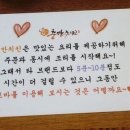 한식은 맛있는 요리를 제공하기위해
주문과 동시에 조리를 시작해요~
그래서 타 브랜드보다 5분~10분정도
시간이 더 걸릴 수 있으니 그동안
를 이용해 보시는 것은 어떨까요~